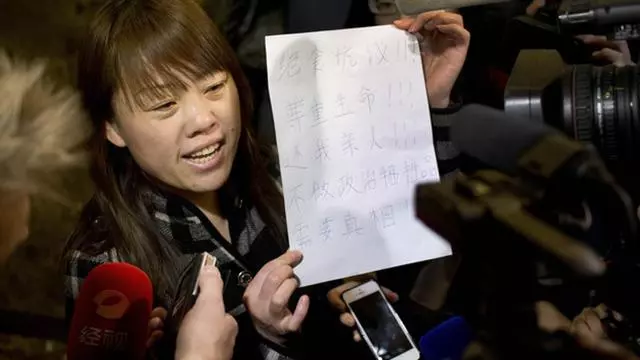 绝食抗议!!!
尊重生命!!!
还我亲人!!!
不做政治牺牲品
需要真相
经视